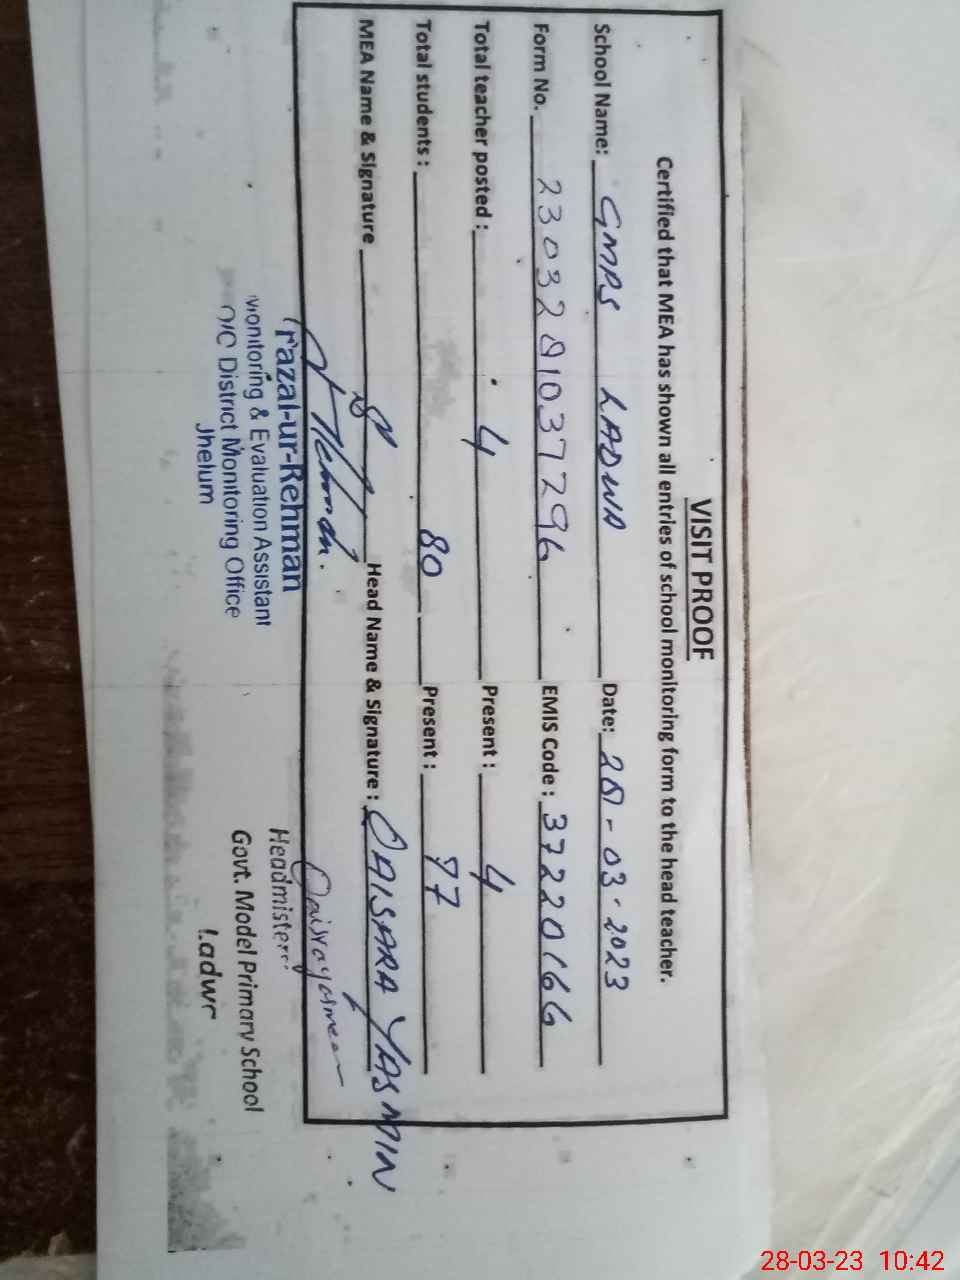 VISIT PROOF
Certified that MEA has shown all entries of school monitoring form to the head teacher.
School Name: GMPS LADWA Date: 28-03-2023
Form No. 2303281037296 EMIS Code: 37220166
Total teacher posted: 4 Present: 4
Total students: 80 Present: 77
MEA Name & Signature Head Name & Signature: QAISARA YASMIN
Fazal-ur-Rehman
Monitoring & Evaluation Assistant
O/C District Monitoring Office
Jhelum
Headmistress
Govt. Model Primary School
Ladwa
28-03-23 10:42